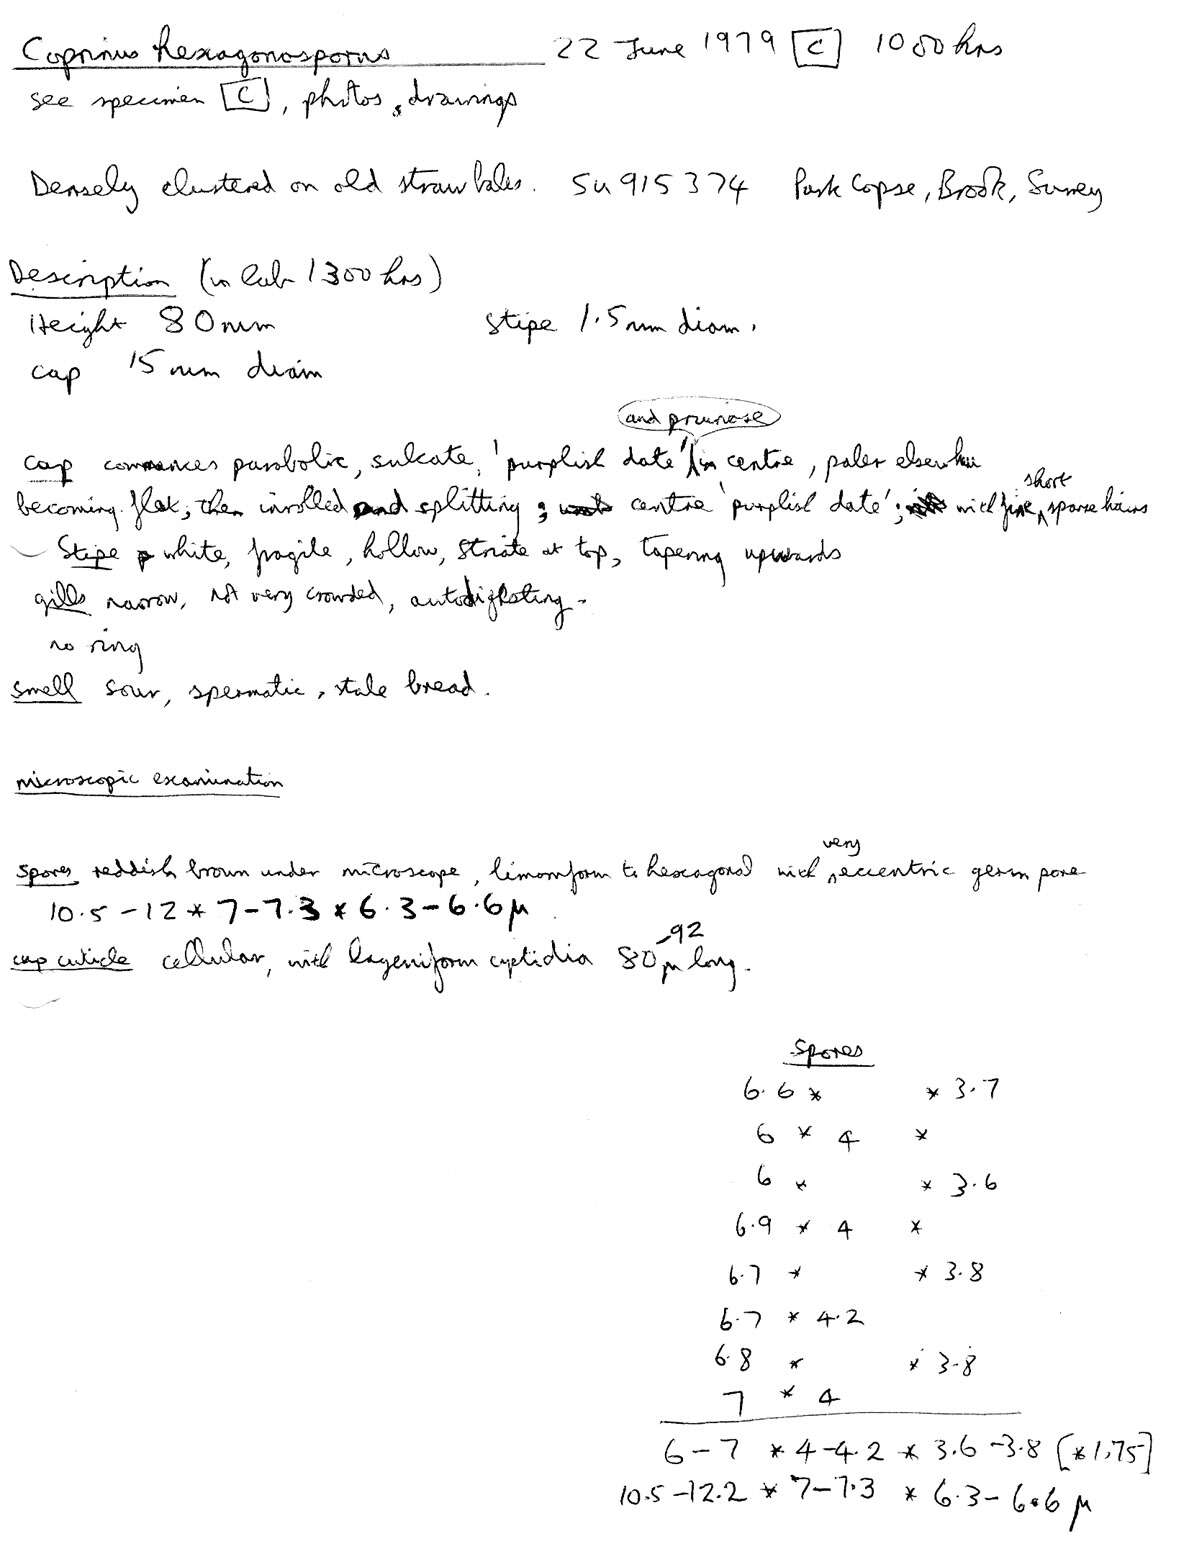 Coprinus hexagonosporus 22 June 1979 [C] 1000 hrs
see specimen [C], photos, drawings
Densely clustered on old straw bales. SU 915374 Park Copse, Brook, Surrey
Description (in lab 1300 hrs)
Height 80mm stipe 1.5mm diam.
cap 15mm diam
and pruinose
cap commences parabolic, sulcate, 'purplish date' in centre, paler elsewhere
short
becoming flat, then inrolled and splitting; centre 'purplish date'; with fine sparse hairs
Stipe white, fragile, hollow, striate at top, tapering upwards
gills narrow, not very crowded, autodigesting.
no ring
smell sour, spermatic, stale bread.
microscopic examination
very
spores reddish brown under microscope, limoniform to hexagonal with eccentric germ pore
10.5-12 * 7-7.3 * 6.3-6.6 μ
-92
cap cuticle cellular, with lageniform cystidia 80μ long.
Spores
6.6 * * 3.7
6 * 4 *
6 * * 3.6
6.9 * 4 *
6.7 * * 3.8
6.7 * 4.2
6.8 * * 3.8
7 * 4
6-7 * 4-4.2 * 3.6-3.8 [*1.75]
10.5-12.2 * 7-7.3 * 6.3-6.6 μ